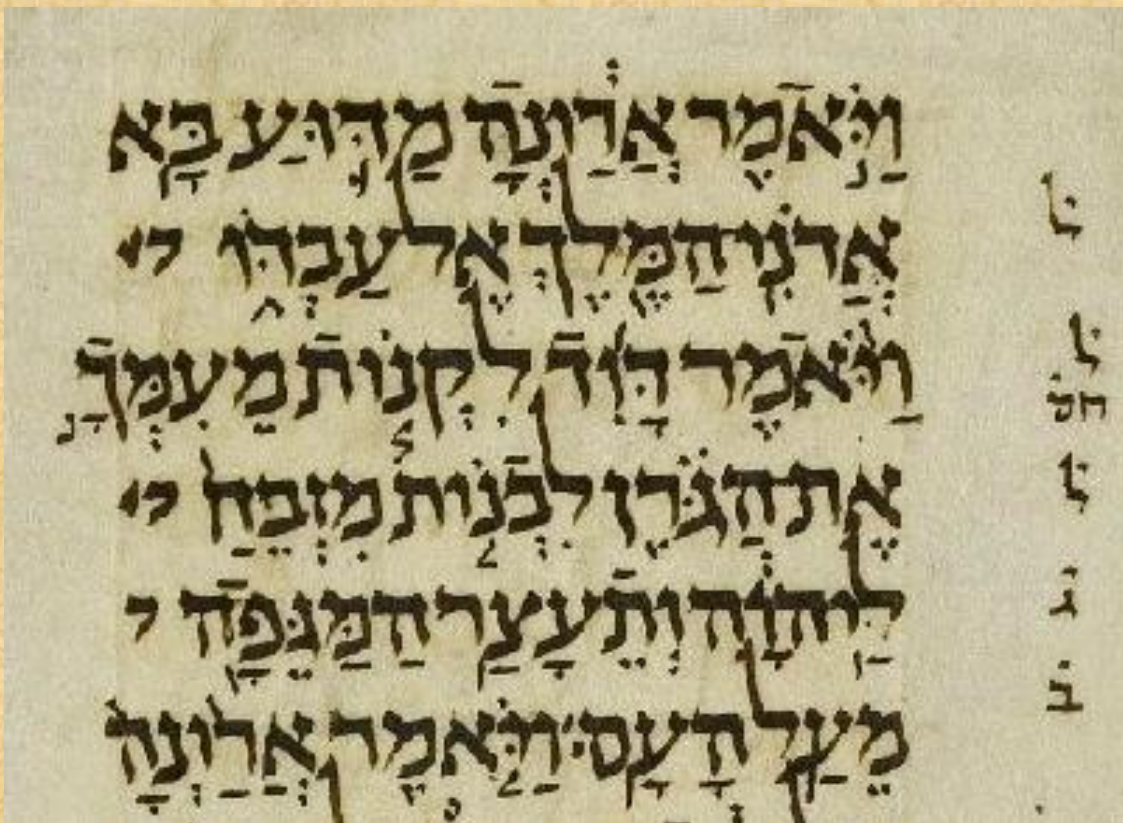 וַיֹּ֣אמֶר אֲרַ֔וְנָה מַדּ֛וּעַ בָּ֥א
אֲדֹנִי הַמֶּ֖לֶךְ אֶל עַבְדּ֑וֹ
וַיֹּ֨אמֶר דָּוִ֜ד לִקְנ֧וֹת מֵעִמְּךָ֣
אֶת הַגֹּ֗רֶן לִבְנ֤וֹת מִזְבֵּ֙חַ֙
לַֽיהוָ֔ה וְתֵעָצַ֥ר הַמַּגֵּפָ֖ה
מֵעַ֥ל הָעָֽם׃ וַיֹּ֤אמֶר אֲרַ֙וְנָה֙
ל
ל
חס
ל
ג
ב